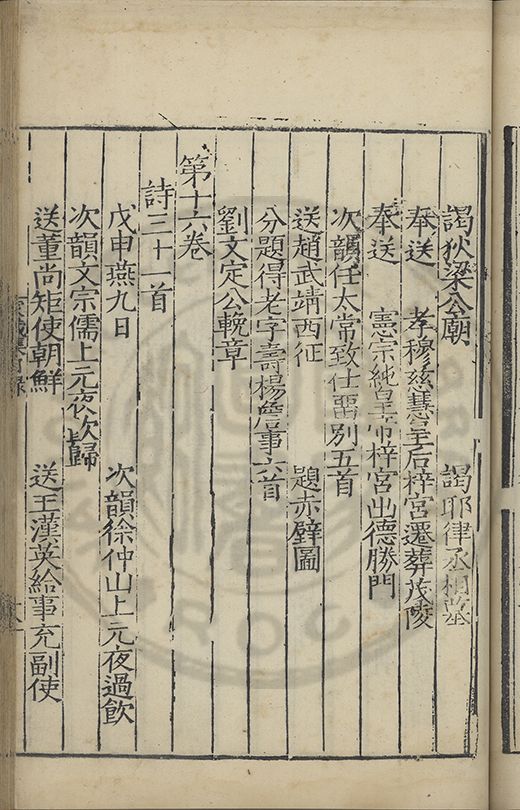 謁狄梁公廟　謁耶律丞相墓
奉送　孝穆慈慧皇后梓宮遷葬茂陵
奉送　憲宗純皇帝梓宮出德勝門
次韻任太常致仕畱別五首
送趙武靖西征　題赤壁圖
分題得老字壽楊詹事六首
劉文定公輓章
第十六卷
詩三十一首
戊申燕九日　次韻徐仲山上元夜過飲
次韻文宗儒上元夜飲歸
送董尚矩使朝鮮　送王漢英給事充副使